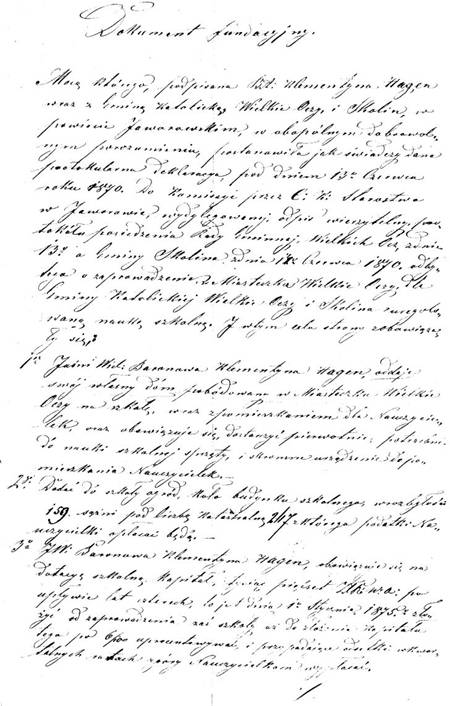 Dokument fundacyjny.
Mocą którego, podpisana Bt: Klementyna Hagen
wraz z Gminą Katolicką Wielkie Oczy, i Skolin, w
powiecie Jaworowskim, w obopólnym dobrowol-
nym porozumieniu, postanowiła jak świadczy dana
protokularna deklaracja, pod dniem 13º Czerwca
roku 1870. Do Komisyi przez C: K: Starostwa
w Jaworowie, wydelegowanej, odpis wierzytelny pro-
tokółu posiedzenia Rady Gminnej Wielkich Ocz, z dnia
13º a Gminy Skolina z dnia Czerwca 1870. odby-
tego o zaprowadzenie w Miasteczku Wielkie Oczy, dla
Gminy Katolickiej Wielkie Oczy i Skolina uregulo-
waną naukę szkolną. I w tym celu strony zobowiązu-
ją się,
1º Jaśni Wiel: Baronowa Klementyna Hagen, oddaje
swój własny dóm pobudowany w Miasteczku Wielkie
Oczy na szkołę, wraz z pomieszkaniem dla Nauczycie-
lek, oraz obowiązuje się, dostarczyć pierwotnie potrzebne
do nauki szkolnej sprzęty, i skromne urządzenie do po-
mieszkania Nauczycielek.
2º Dodać do szkoły ogród, koło budynku szkolnego, w rozległości
159 sążni pod liczbą katastralną 247 z którego podatki Na-
uczycielki opłacać będą.
3º JW. Baronowa Klementyna Hagen, obowiązuje się na
dotacyę szkolną Kapitał, tysiąc pięćset ZłR: w.a: po
upływie lat czterech, to jest dnia 1º Stycznia 1875. r. zło-
żyć od zaprowadzenia zaś szkoły aż do złożenia kapitału
tego po 6% uprocentowywać, i przypadające odsetki w kwar-
talnych ratach z góry Nauczycielkom wypłacać.